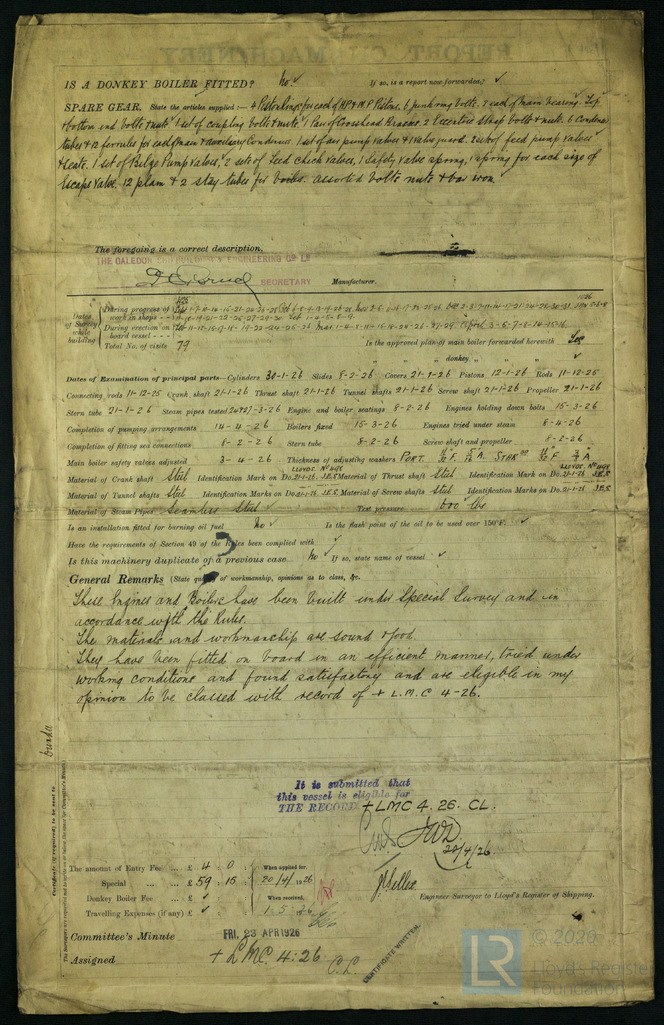 IS A DONKEY BOILER FITTED? No. ✓ If so, is a report now forwarded? ✓
SPARE GEAR. State the articles supplied:— 4 Piston Rings for each of HP & M.P. Pistons, 6 junk ring bolts. 2 each of main bearing, Top
& bottom end bolts & nuts. 1 set of coupling bolts & nuts. 1 Pair of Crosshead Brasses. 2 Eccentric strap bolts & nuts. 6 Condenser
tubes & 12 ferrules for each of main & auxiliary Condensers. 1 set of air pump valves & 1 valve guard. 2 sets of feed pump valves
& seats. 1 set of Bilge Pump Valves. 2 sets of feed check valves, 1 safety valve spring, 1 spring for each size of
Escape Valve. 12 plain & 2 stay tubes for boiler. Assorted bolts nuts & bar iron.
The foregoing is a correct description,
THE CALEDON SHIPBUILDING & ENGINEERING CO LD
SECRETARY Manufacturer.
Dates of Survey while building
During progress of work in shops - -
During erection on board vessel - - -
Total No. of visits 79
Is the approved plan of main boiler forwarded herewith Yes
" " " donkey " " " ✓
Dates of Examination of principal parts—Cylinders 30-1-26 Slides 8-2-26 Covers 21-1-26 Pistons 12-1-26 Rods 11-12-25
Connecting rods 11-12-25 Crank shaft 21-1-26 Thrust shaft 21-1-26 Tunnel shafts 21-1-26 Screw shaft 21-1-26 Propeller 21-1-26
Stern tube 21-1-26 Steam pipes tested 24&27-3-26 Engine and boiler seatings 8-2-26 Engines holding down bolts 15-3-26
Completion of pumping arrangements 14-4-26 Boilers fixed 15-3-26 Engines tried under steam 8-4-26
Completion of fitting sea connections 8-2-26 Stern tube 8-2-26 Screw shaft and propeller 8-2-26
Main boiler safety valves adjusted 3-4-26 Thickness of adjusting washers PORT. F A. STAR BD F A
Material of Crank shaft Steel Identification Mark on Do. LLOYDS. 21-1-26 J.E.S Material of Thrust shaft Steel Identification Mark on Do. LLOYDS. 21-1-26 J.E.S.
Material of Tunnel shafts Steel Identification Marks on Do. 21-1-26 J.E.S. Material of Screw shafts Steel Identification Marks on Do. 21-1-26 J.E.S
Material of Steam Pipes Seamless Steel ✓ Test pressure 600 lbs
Is an installation fitted for burning oil fuel No ✓ Is the flash point of the oil to be used over 150°F. ✓
Have the requirements of Section 49 of the Rules been complied with ✓
Is this machinery duplicate of a previous case No ✓ If so, state name of vessel ✓
General Remarks (State quality of workmanship, opinions as to class, &c.
These Engines and Boilers have been built under Special Survey and in
accordance with the Rules.
The materials and workmanship are sound & good.
They have been fitted on board in an efficient manner, tried under
working conditions and found satisfactory and are eligible in my
opinion to be classed with record of + L.M.C 4-26.
Dundee
Certificate (if required) to be sent to
It is submitted that
this vessel is eligible for
THE RECORD + LMC 4. 26. CL.
20/4/26
The amount of Entry Fee ... £ 4 : 0 : When applied for,
Special ... ... £ 59 : 15 : 20/4/1926
Donkey Boiler Fee ... £ ✓ : When received,
Travelling Expenses (if any) £ ✓ : 1.5.26
Engineer Surveyor to Lloyd's Register of Shipping.
Committee's Minute FRI. 23 APR 1926
Assigned + LMC. 4:26 C.L.
CERTIFICATE WRITTEN.
LR © 2020
Lloyd's Register
Foundation